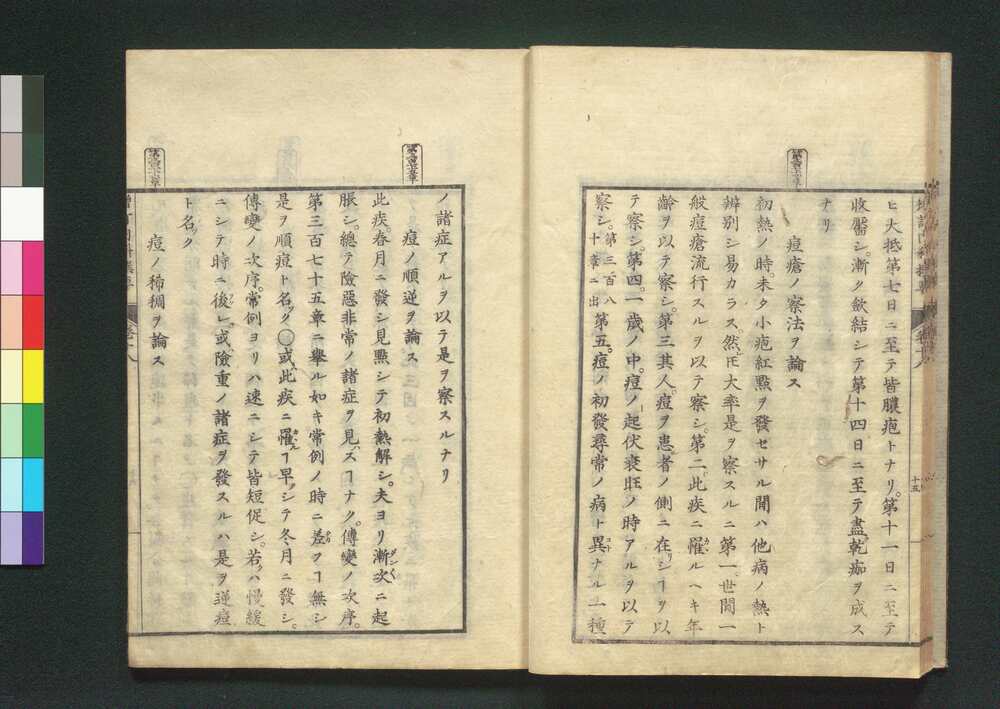 ヒ大抵第七日ニ至テ皆膿疱トナリ。第十一日ニ至テ
收靨シ。漸ク歛結シテ第十四日ニ至テ盡ク乾痂ヲ成ス
ナリ
痘瘡ノ察法ヲ論ス
初熱ノ時。未タ小疱紅點ヲ發セサル間ハ他病ノ熱ト
辨別シ易カラス。然𪜈大率是ヲ察スルニ第一。世間一
般痘瘡流行スルヲ以テ察シ。第二。此疾ニ罹ルヘキ年
齡ヲ以テ察シ。第三其人。痘ヲ患者ノ側ニ在リシヿヲ以
テ察シ。第四。一歲ノ中。痘ノ起伏衰旺ノ時アルヲ以テ
察シ。第三百八十章ニ出 第五。痘ノ初發尋常ノ病ト異ナル一種
十五
ノ諸症アルヲ以テ是ヲ察スルナリ
痘ノ順逆ヲ論ス
此疾。春月ニ發シ見點シテ初熱解シ。夫ヨリ漸次ニ起
脹シ。總テ險惡非常ノ諸症ヲ見ハスヿナク。傳變ノ次序。
第三百七十五章ニ擧ル如キ常例ノ時ニ差フヿ無シ
是ヲ順痘ト名ク〇或ハ此疾ニ罹ルヿ早クシテ冬月ニ發シ。
傳變ノ次序。常例ヨリハ速ニシテ皆短促シ。若クハ慢緩
ニシテ時ニ後レ。或險重ノ諸症ヲ發スルハ是ヲ逆痘
ト名ク
痘ノ稀稠ヲ論ス